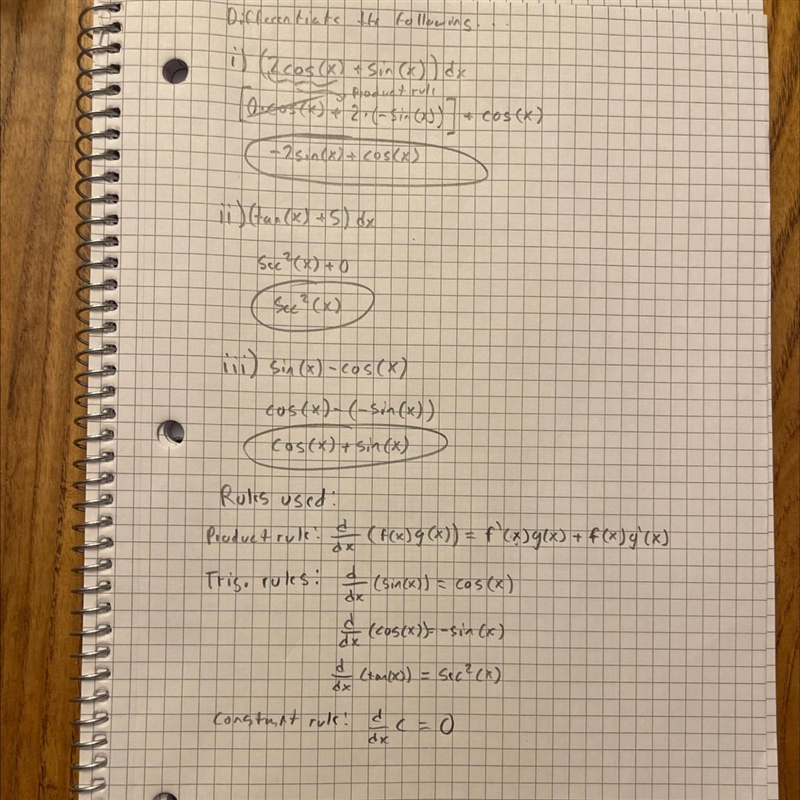 Differentiate the following...
i) (2cos(x) + sin(x)) dx
product rule
[0·cos(x) + 2·(-sin(x))] + cos(x)
-2sin(x) + cos(x)
ii) (tan(x) + 5) dx
sec²(x) + 0
sec²(x)
iii) sin(x) - cos(x)
cos(x) - (-sin(x))
cos(x) + sin(x)
Rules used:
Product rule: d/dx (f(x)g(x)) = f'(x)g(x) + f(x)g'(x)
Trig. rules: d/dx (sin(x)) = cos(x)
d/dx (cos(x)) = -sin(x)
d/dx (tan(x)) = sec²(x)
Constant rule: d/dx c = 0